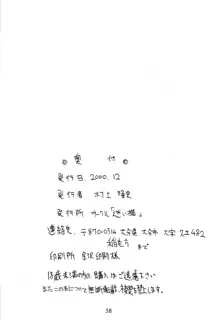 奥付
発行日. 2000.12
発行者 村上
発行所 サークル「迷い猫」
連絡先. 〒870-0314 大分県 大分市 大字 482
まで
印刷所 金沢印刷様
18歳未満の方の購入はご遠慮下さい
また この本について 無断転載、複製を禁じます。
38